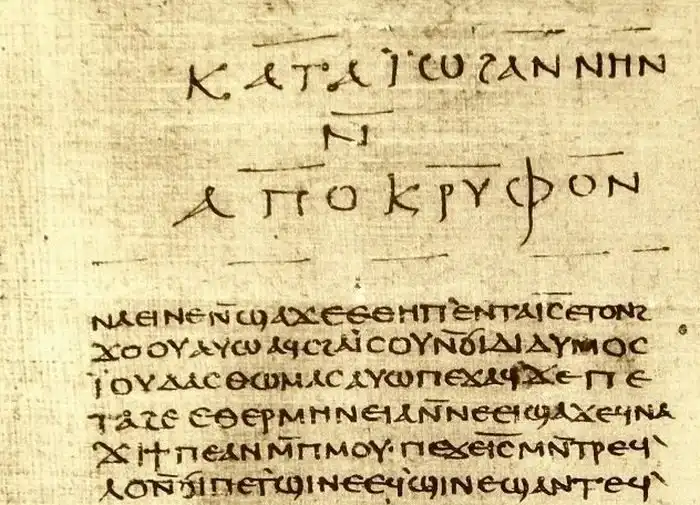 ⲕⲁⲧⲁ ⲓ̈ⲱϩⲁⲛⲛⲏⲛ
ⲛ̄
ⲁⲡⲟⲕⲣⲩⲫⲟⲛ
ⲛⲁⲉⲓⲛⲉⲛ̄ϣⲁϫⲉⲉⲑⲏⲡ`ⲉⲛⲧⲁⲓ̅ⲥ̅ⲉⲧⲟⲛϩ
ϫⲟⲟⲩⲁⲩⲱⲁϥⲥϩⲁⲓ̈ⲥⲟⲩⲛ̄ϭⲓⲇⲓⲇⲩⲙⲟⲥ
ⲓ̈ⲟⲩⲇⲁⲥⲑⲱⲙⲁⲥⲁⲩⲱⲡⲉϫⲁϥ`ϫⲉⲡⲉ
ⲧⲁϩⲉⲉⲑⲉⲣⲙⲏⲛⲉⲓⲁⲛ̄ⲛⲉⲉⲓϣⲁϫⲉϥⲛⲁ
ϫⲓϯⲡⲉⲁⲛⲙ̄ⲡⲙⲟⲩ·ⲡⲉϫⲉⲓ̅ⲥ̅ⲙⲛ̄ⲧⲣⲉϥ`
ⲗⲟⲛ̄ϭⲓⲡⲉⲧϣⲓⲛⲉⲉϥϣⲓⲛⲉϣⲁⲛⲧⲉϥ`